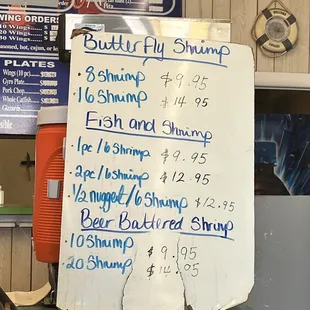 WING ORDERS
PLATES
Wings (10 pcs.)
Gyro Plate
Pork Chop
Whole Catfish
Gizzards
Butterfly Shrimp
· 8 Shrimp $9.95
· 16 Shrimp $14.95
Fish and Shrimp
· 1pc / 6 Shrimp $9.95
· 2pc / 6 Shrimp $12.95
· 1/2 nugget / 6 Shrimp $12.95
Beer Battered Shrimp
· 10 Shrimp $9.95
· 20 Shrimp $14.95